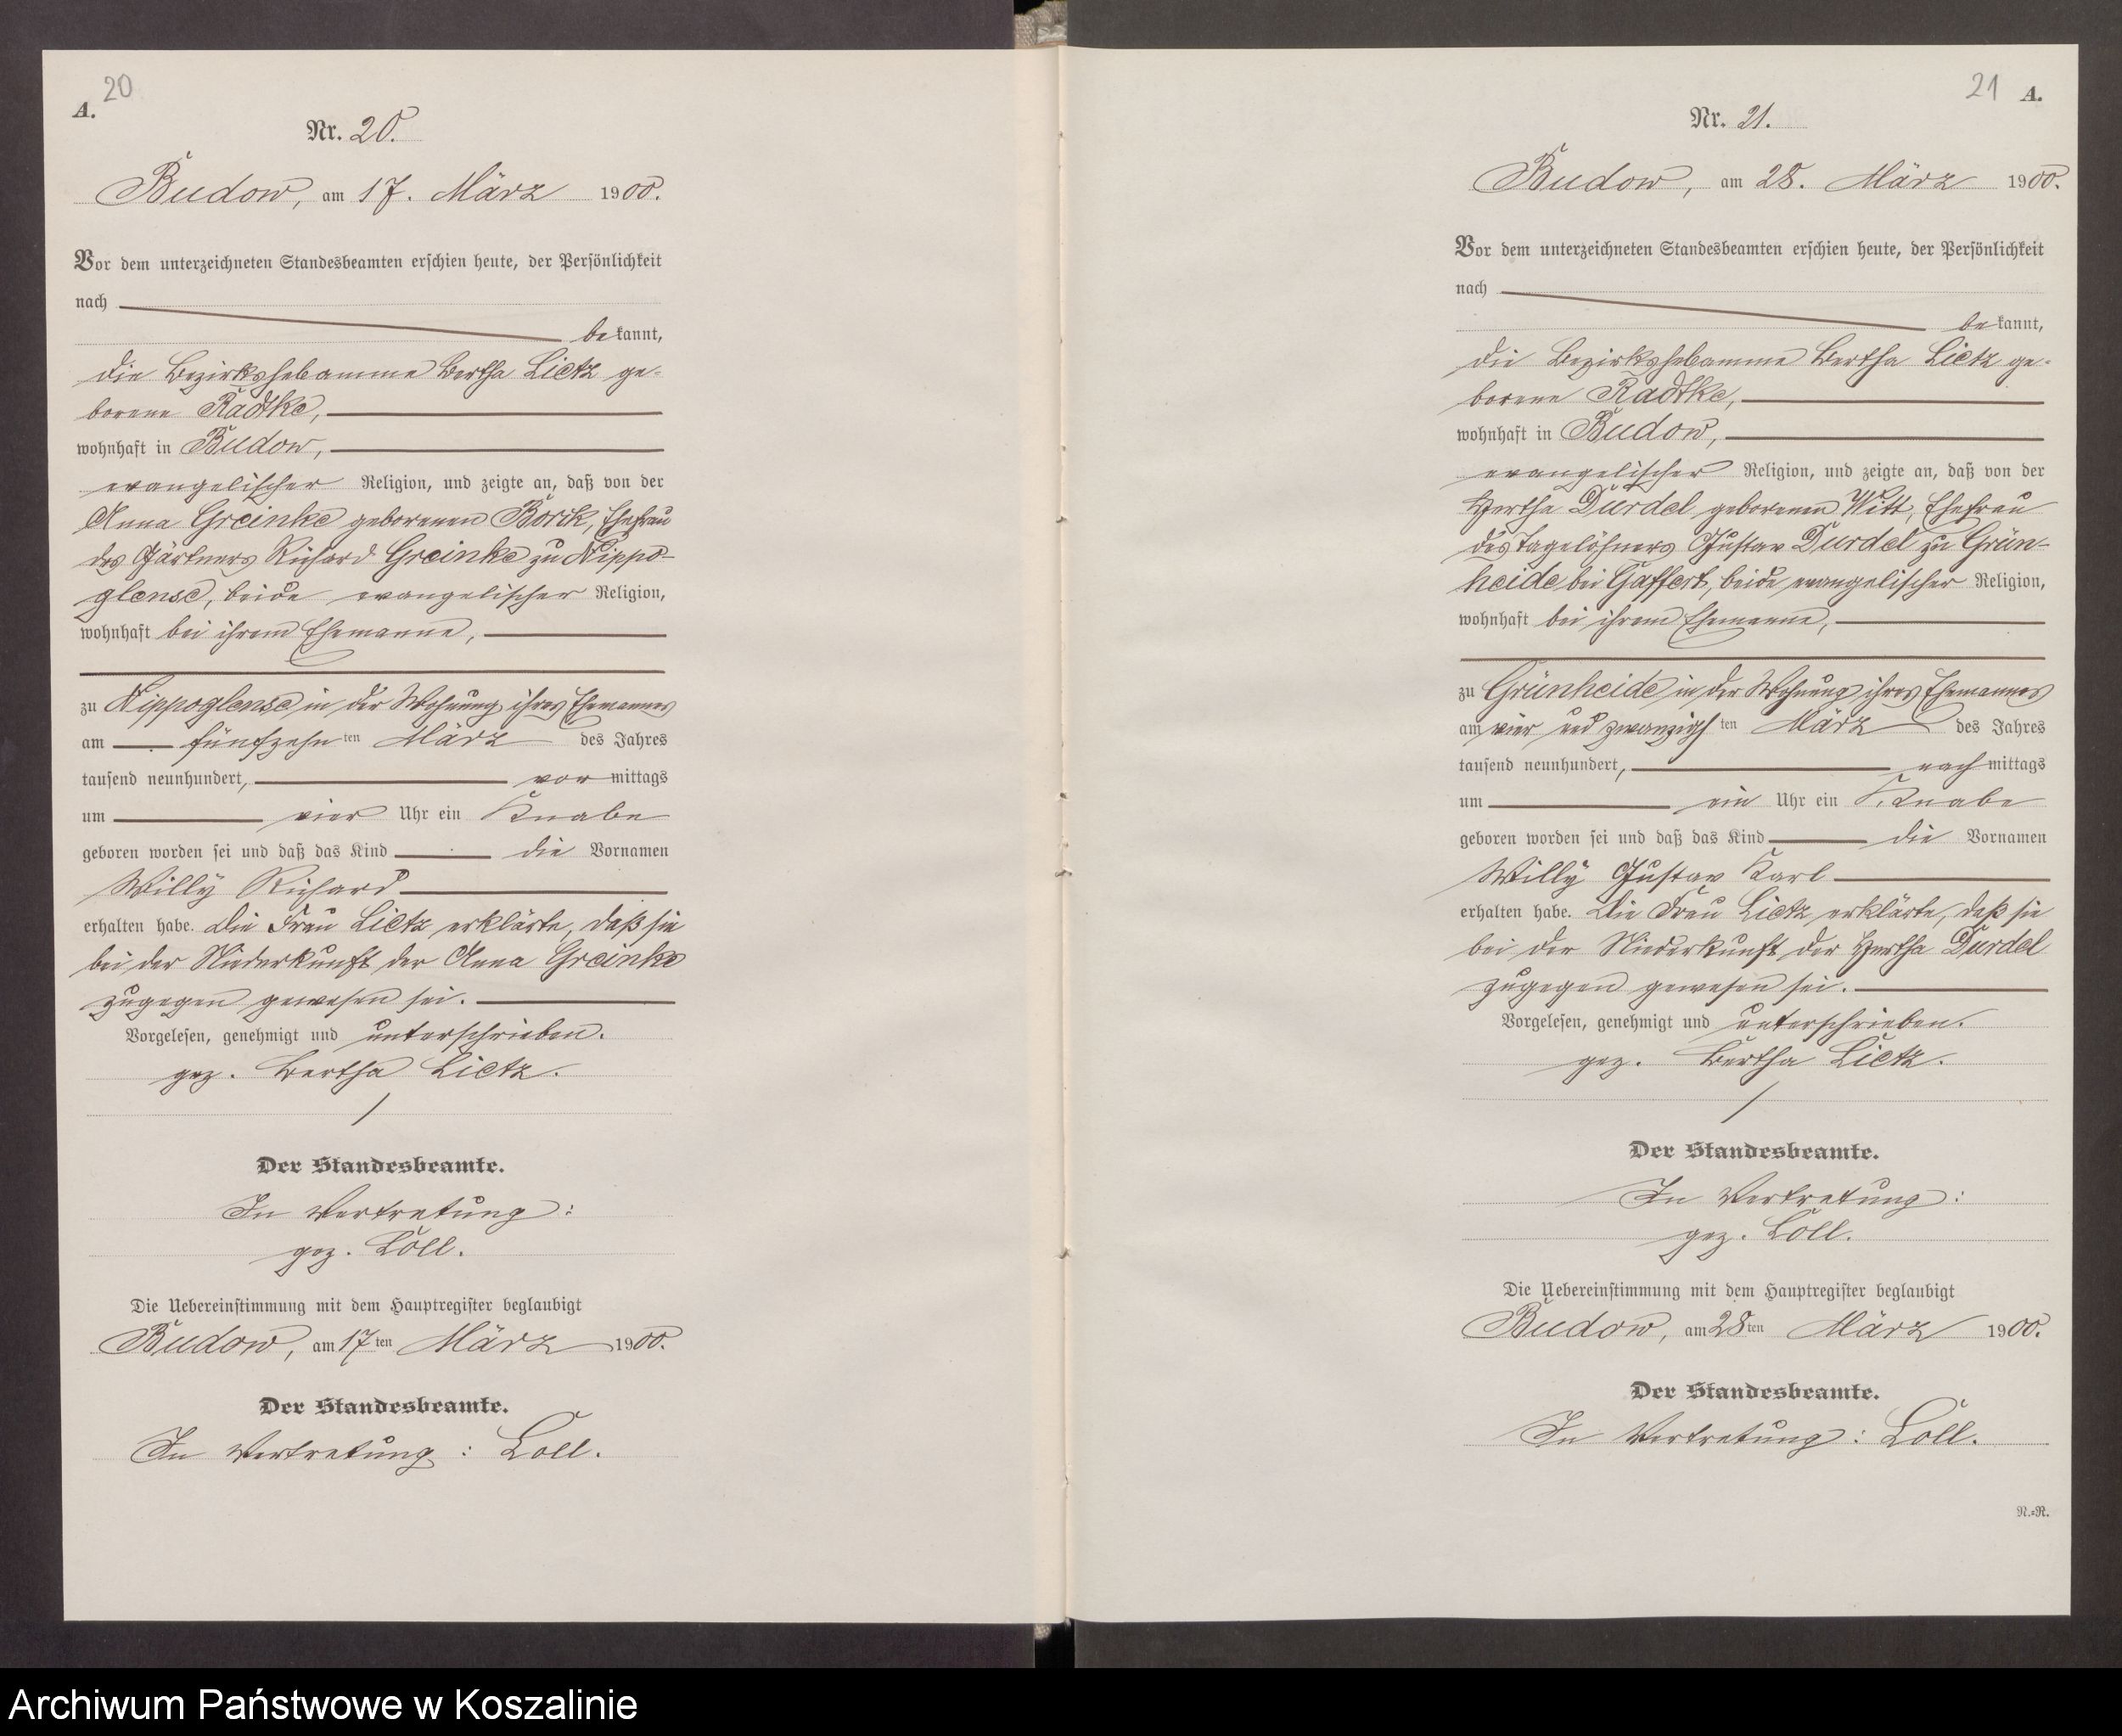 20
A.
Nr. 20.
Budow, am 17. März 1900.
Vor dem unterzeichneten Standesbeamten erschien heute, der Persönlichkeit
nach
bekannt,
die Bezirkshebamme Bertha Lietz ge-
borene Radtke,
wohnhaft in Budow,
evangelischer Religion, und zeigte an, daß von der
Anna Greinke geborenen Borik, Ehefrau
des Gärtners Richard Greinke zu Nippo-
glense, beide evangelischer Religion,
wohnhaft bei ihrem Ehemanne,
zu Nippoglense in der Wohnung ihres Ehemannes
am fünfzehnten März des Jahres
tausend neunhundert, vormittags
um vier Uhr ein Knabe
geboren worden sei und daß das Kind die Vornamen
Willy Richard
erhalten habe. Die Frau Lietz erklärte, daß sie
bei der Niederkunft der Anna Greinke
zugegen gewesen sei.
Vorgelesen, genehmigt und unterschrieben.
gez. Bertha Lietz.
Der Standesbeamte.
In Vertretung:
gez. Löll.
Die Uebereinstimmung mit dem Hauptregister beglaubigt
Budow, am 17ten März 1900.
Der Standesbeamte.
In Vertretung: Löll.
21 A.
Nr. 21.
Budow, am 28. März 1900.
Vor dem unterzeichneten Standesbeamten erschien heute, der Persönlichkeit
nach
bekannt,
die Bezirkshebamme Bertha Lietz ge-
borene Radtke,
wohnhaft in Budow,
evangelischer Religion, und zeigte an, daß von der
Hertha Durdel geborenen Witt, Ehefrau
des Tagelöhners Gustav Durdel zu Grün-
heide bei Gaffert, beide evangelischer Religion,
wohnhaft bei ihrem Ehemanne,
zu Grünheide in der Wohnung ihres Ehemannes
am vier und zwanzigsten März des Jahres
tausend neunhundert, nachmittags
um ein Uhr ein Knabe
geboren worden sei und daß das Kind die Vornamen
Willy Gustav Karl
erhalten habe. Die Frau Lietz erklärte, daß sie
bei der Niederkunft der Hertha Durdel
zugegen gewesen sei.
Vorgelesen, genehmigt und unterschrieben.
gez. Bertha Lietz.
Der Standesbeamte.
In Vertretung:
gez. Löll.
Die Uebereinstimmung mit dem Hauptregister beglaubigt
Budow, am 28ten März 1900.
Der Standesbeamte.
In Vertretung: Löll.
N.=R.
Archiwum Państwowe w Koszalinie